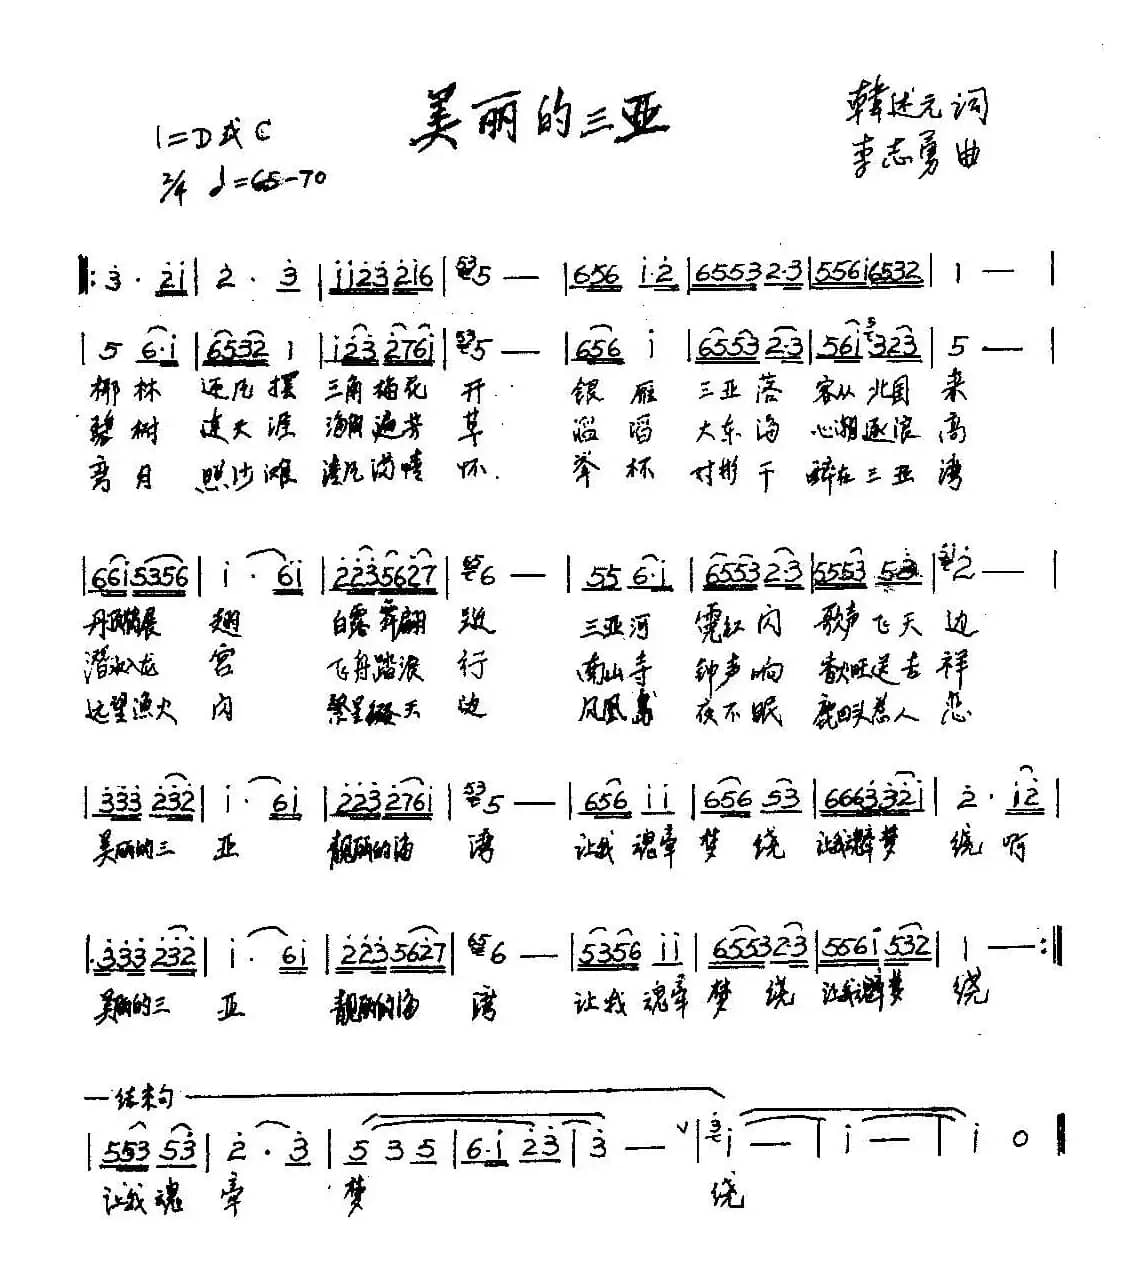 美丽的三亚
韩述元词
李志勇曲
1=D或C
2/4 ♩=65-70
3· 2i | 2· 3 | ii23 2i6 | 5 — | 656 i·2 | 6553 2·3 | 556i 6532 | 1 — |
5 6·i | 6532 1 | i23 276i | 5 — | 656 i | 6553 2·3 | 56i 323 | 5 — |
椰林 还凡摆 三角梅花 开 银雁 三亚落 客从北国 来
碧树 连天涯 海角遍芳 草 滔滔 大东海 心潮逐浪 高
弯月 照沙滩 满情 怀 举杯 对影干 醉在三亚 湾
66i 5356 | i· 6i | 223 5627 | 6 — | 55 6·i | 6553 2·3 | 5553 53 | 2 — |
丹顶鹤展 翅 白露舞翩 三亚河 霓红闪 歌声飞天 边
潜水入龙 宫 飞舟踏浪 行 南山寺 钟声响 香火旺送吉 祥
远望渔火 闪 繁星缀天 边 凤凰岛 夜不眠 鹿回头惹人 恋
333 232 | i· 6i | 223 276i | 5 — | 656 ii | 656 53 | 6663 32i | 2· i2 |
美丽的三 亚 靓丽的海 湾 让我 魂牵 梦绕 让我魂牵梦 绕啊
333 232 | i· 6i | 223 5627 | 6 — | 5356 ii | 6553 2·3 | 556i 532 | 1 — :‖
美丽的三 亚 靓丽的海 湾 让我 魂牵 梦绕 让我魂牵梦 绕
结束句
553 53 | 2· 3 | 5 35 | 6·i 23 | 3 — | i — | i — | i 0 ‖
让我魂 牵 梦 绕